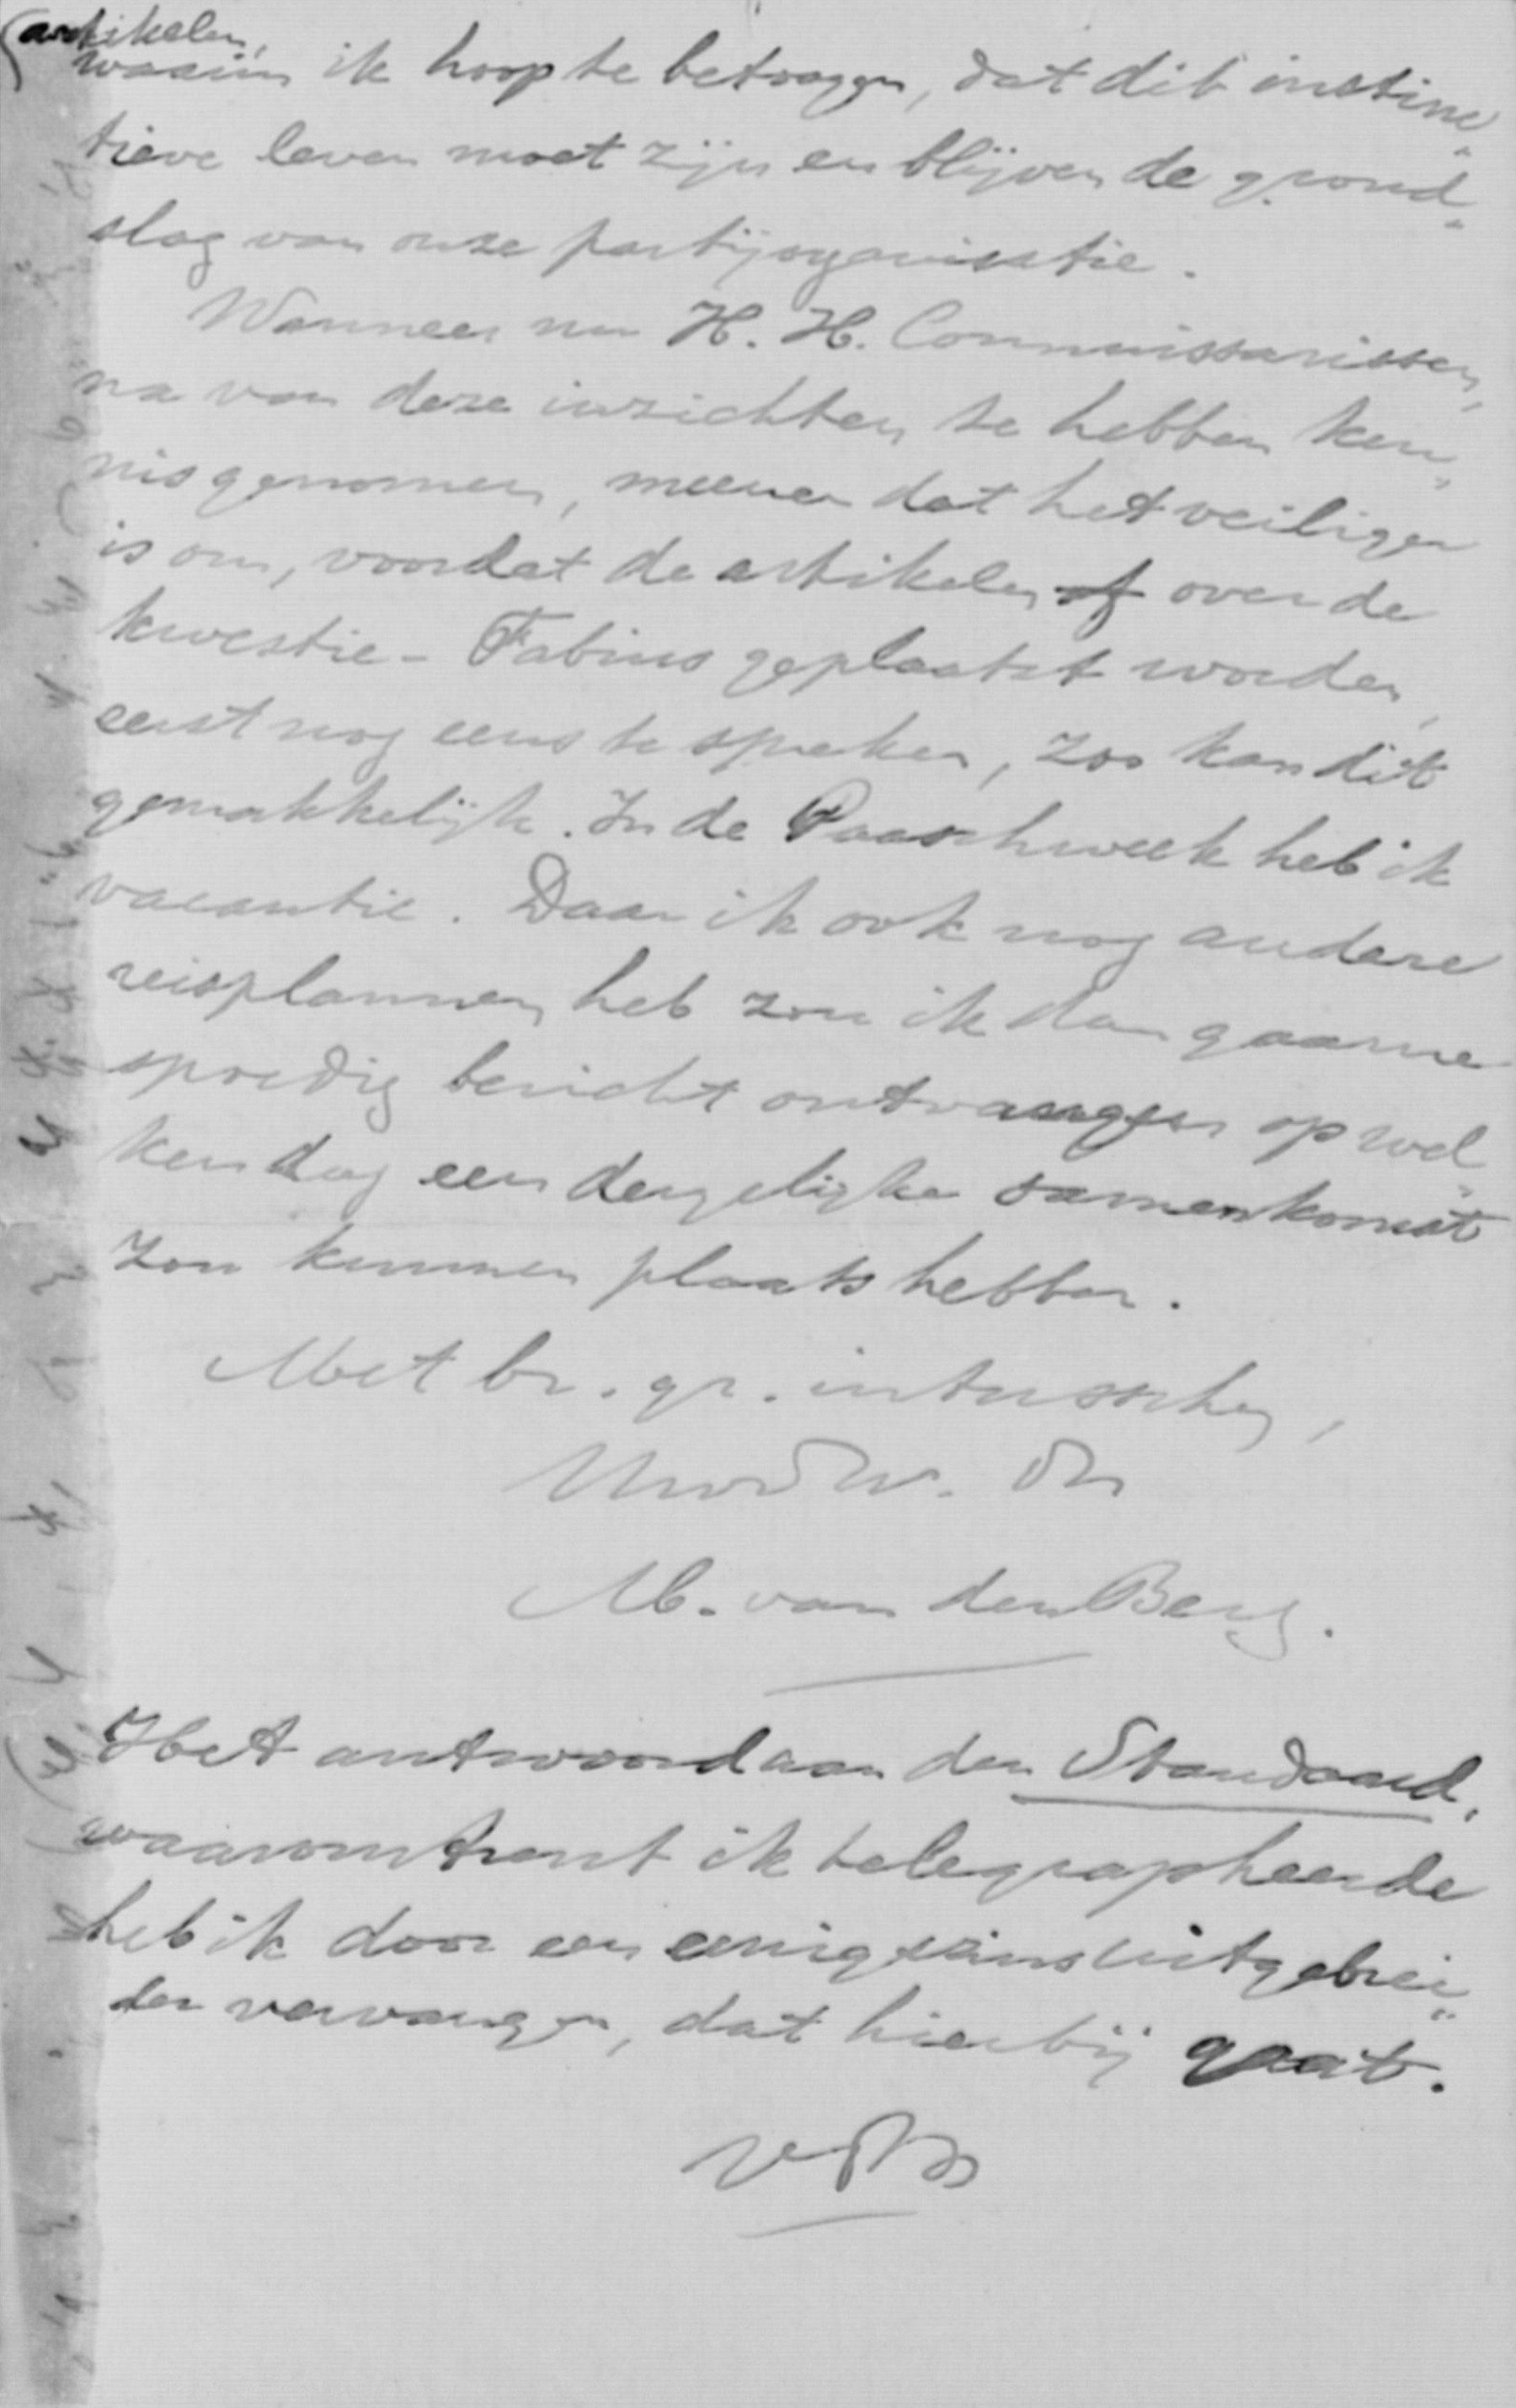 (artikelen,
waarin ik hoop te betoogen, dat dit instinc„
tieve leven moet zijn en blijven de grond„
slag van onze partijorganisatie.
Wanneer nu H. H. Commissarissen,
na van deze inzichten te hebben ken„
nis genomen, meenen dat het veiliger
is om, voordat de artikelen of over de
kwestie - Fabius geplaatst worden,
eerst nog eens te spreken, zoo kan dit
gemakkelijk. In de Paaschweek heb ik
vacantie. Daar ik ook nog andere
reisplannen heb zou ik dan gaarne
spoedig bericht ontvangen op wel„
ken dag een dergelijke samenkomst
zou kunnen plaats hebben.
Met br. gr. intusschen,
Uw dw. dr
M. van den Berg.
Het antwoord aan den Standaard,
waaromtrent ik telegrapheerde
heb ik door een eenigszins uitgebrei„
der vervangen, dat hierbij gaat.
vdB